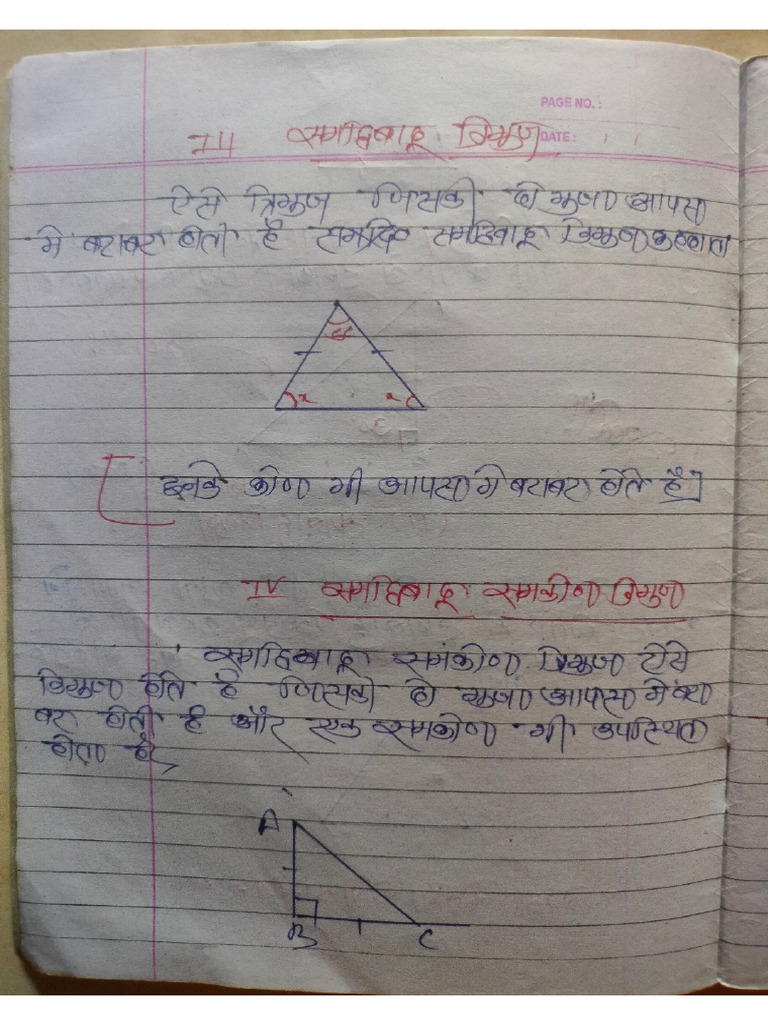 PAGE NO. :
DATE :
III समद्विबाहु त्रिभुज
ऐसे त्रिभुज जिसकी दो भुजा आपस
मे बराबर होती है समद्वि समद्विबाहु त्रिभुज कहलाता
x x
इनके कोण भी आपस मे बराबर होते है]
IV समद्विबाहु समकोण त्रिभुज
समद्विबाहु समकोण त्रिभुज ऐसे
त्रिभुज होते है जिसकी दो भुजा आपस मे बरा
बर होती है और एक समकोण भी उपस्थित
होता है,
A
B C